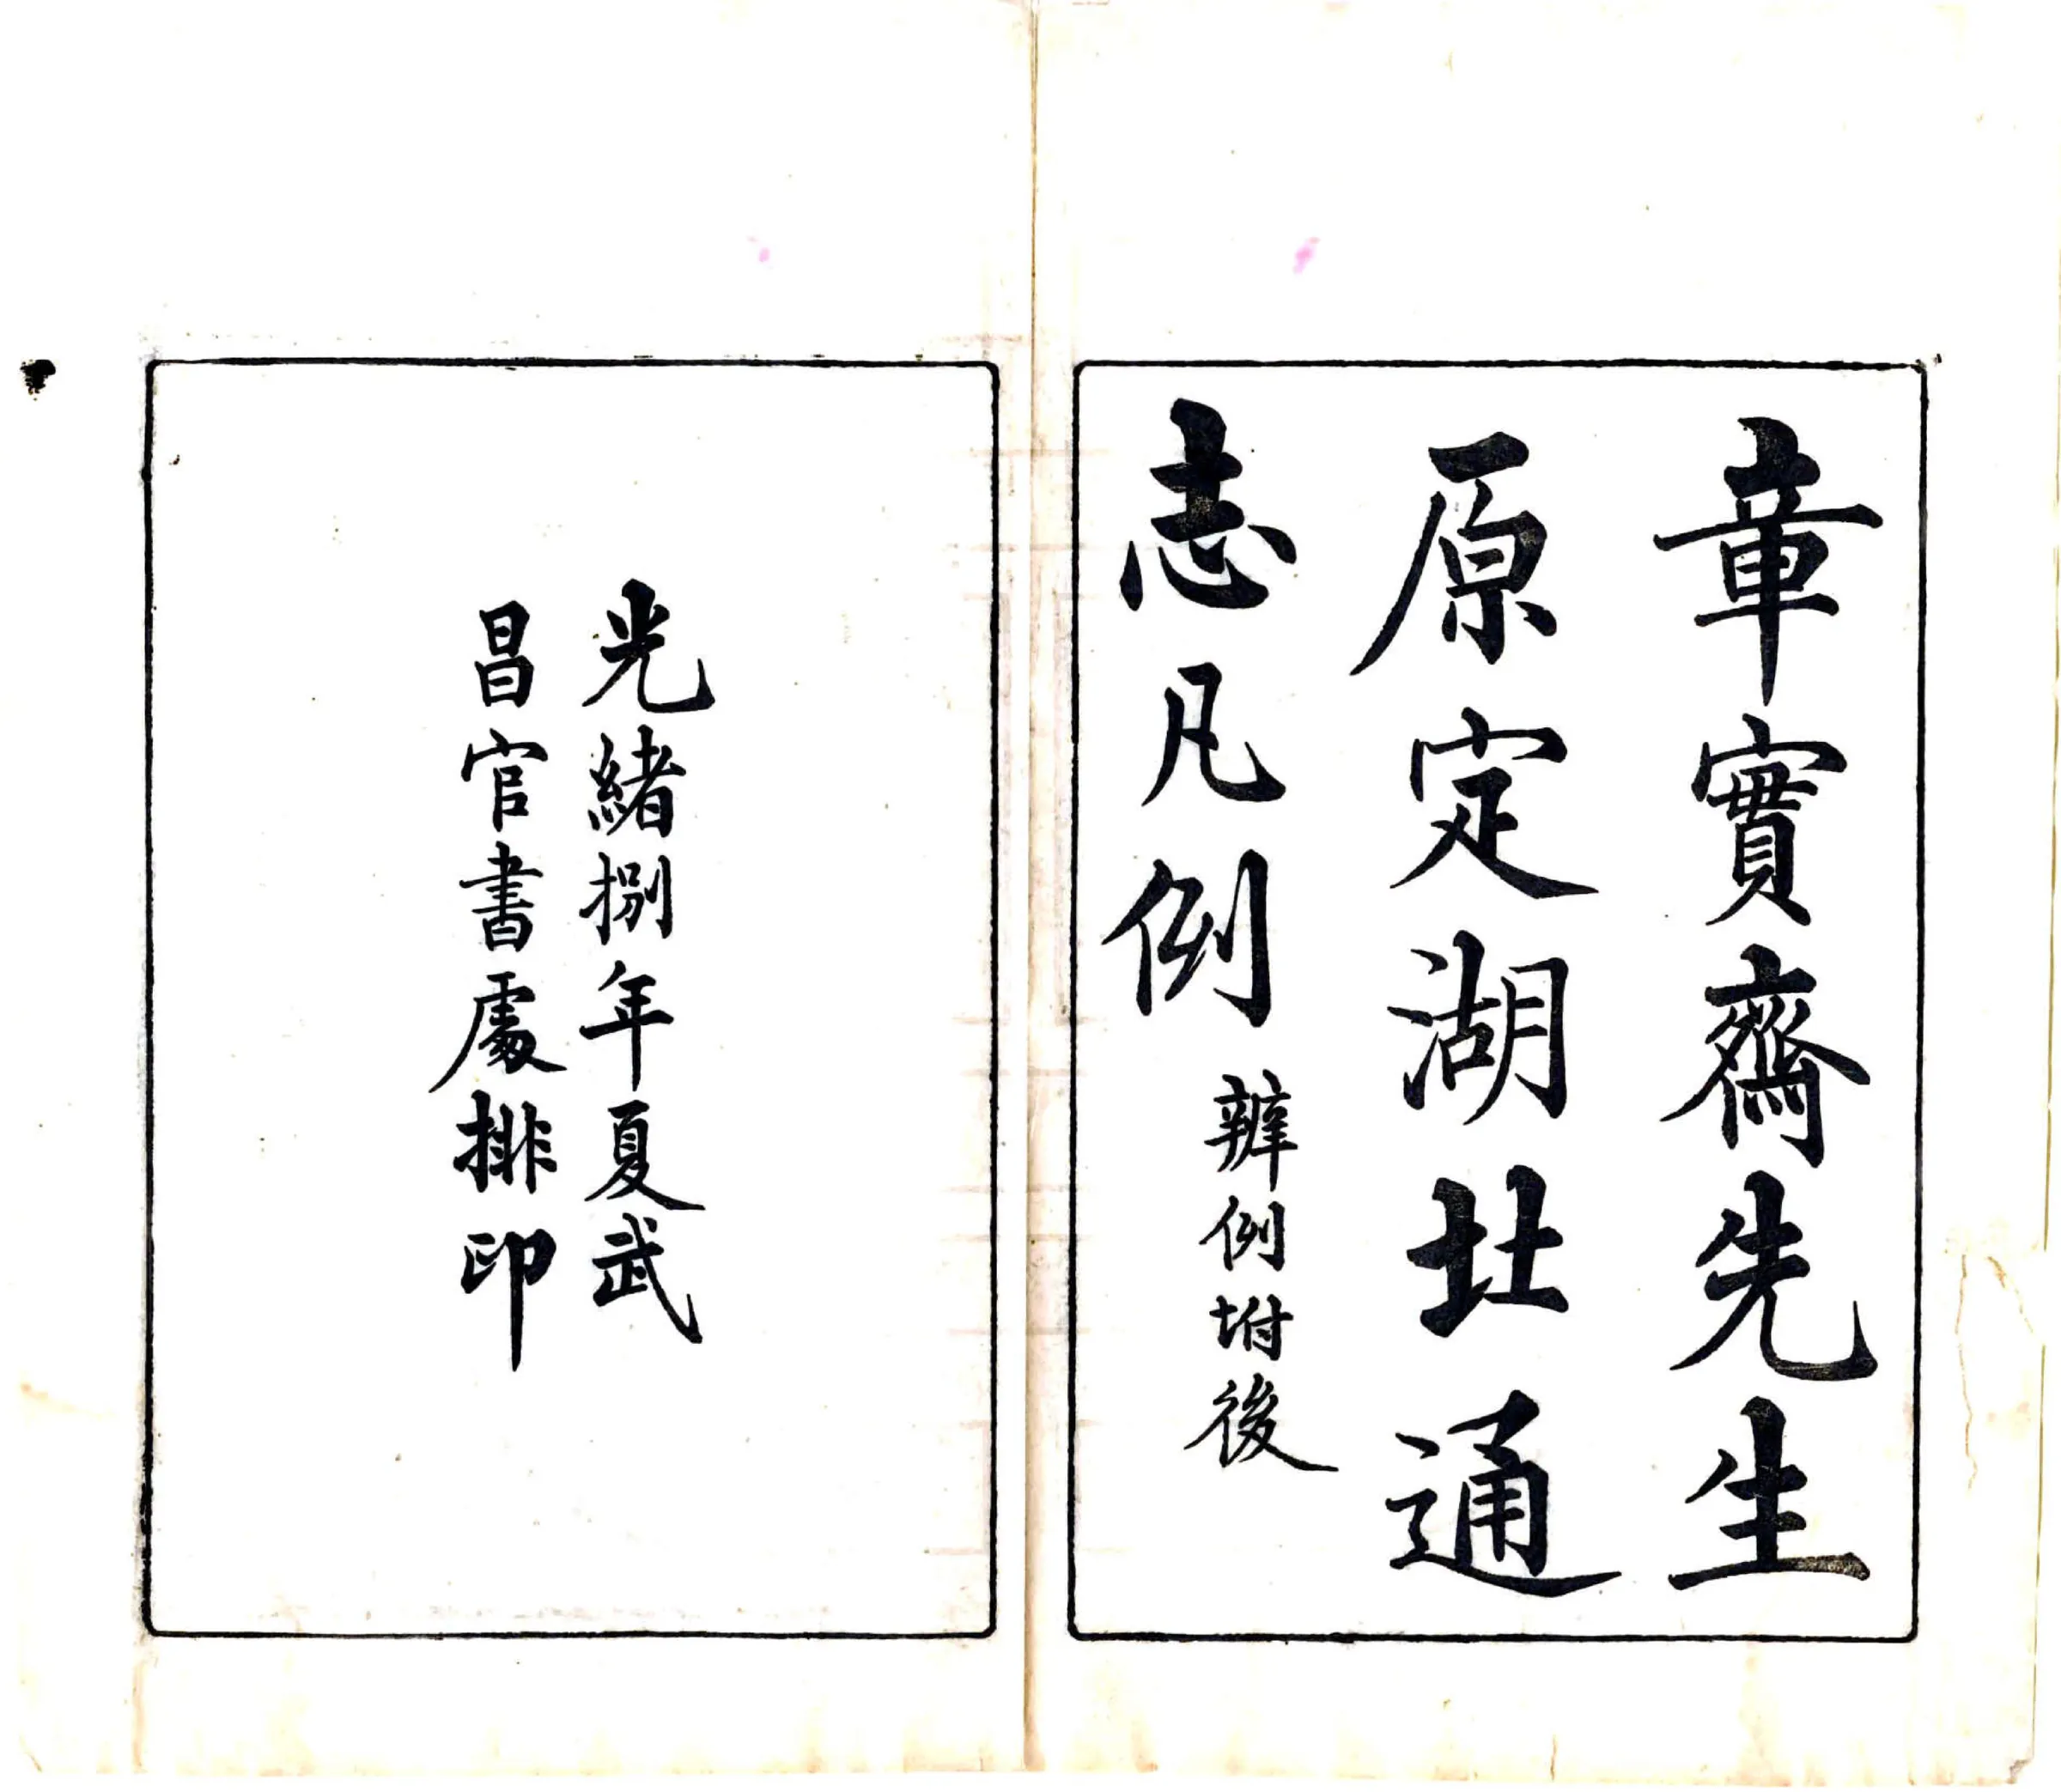 章實齋先生
原定湖北通
志凡例
辨例坿後
光緒捌年夏武
昌官書處排印